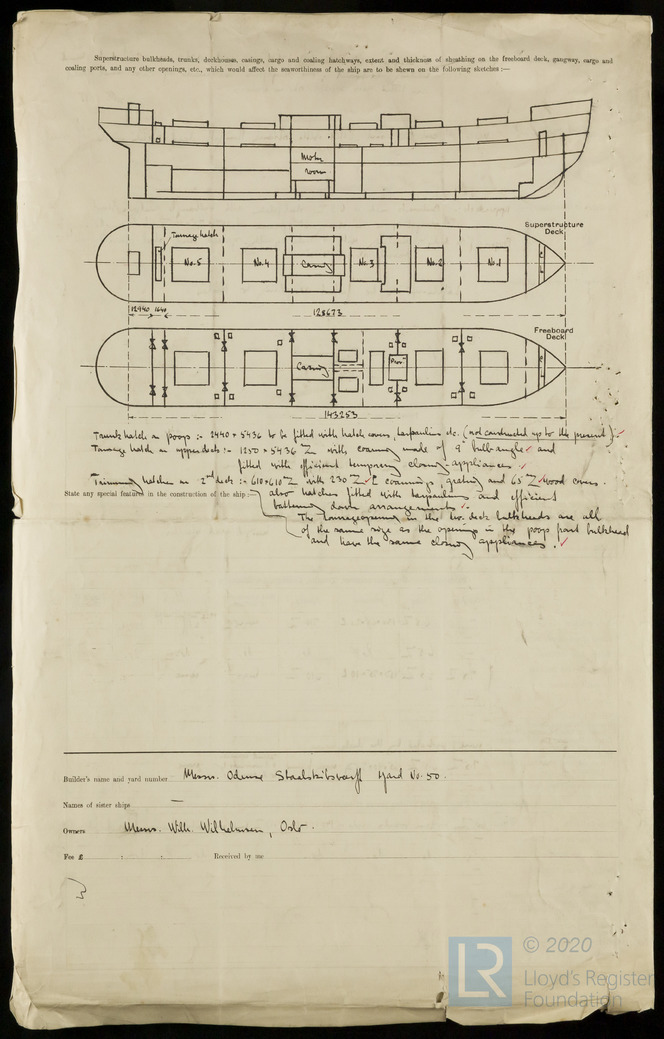 Superstructure bulkheads, trunks, deckhouses, casings, cargo and coaling hatchways, extent and thickness of sheathing on the freeboard deck, gangway, cargo and
coaling ports, and any other openings, etc., which would affect the seaworthiness of the ship are to be shewn on the following sketches :—
Motor
room
Superstructure
Deck
Tonnage hatch
No. 5
No. 4
Casing
No. 3
No. 2
No. 1
12940
1640
128673
Freeboard
Deck
Casing
143253
Trunk hatch on poop :- 2440 × 5436 to be fitted with hatch covers, tarpaulins etc. (not constructed up to the present)
Tonnage hatch on upper deck :- 1250 × 5436 with coaming made of 9" bulb angle and
fitted with efficient temporary closing appliances.
Trimming hatches on 2nd deck :- 610×610 with 230 coamings, grating and 65 wood covers.
State any special features in the construction of the ship :—
also hatches fitted with tarpaulins and efficient
battening down arrangements.
The tonnage opening in the tw. deck bulkheads are all
of the same size as the openings in the poop front bulkhead
and have the same closing appliances.
Builder's name and yard number Messrs. Odense Staalskibsværft Yard No. 50.
Names of sister ships —
Owners Messrs. Wilh. Wilhelmsen, Oslo.
Fee £ : : Received by me
LR
© 2020
Lloyd's Register
Foundation